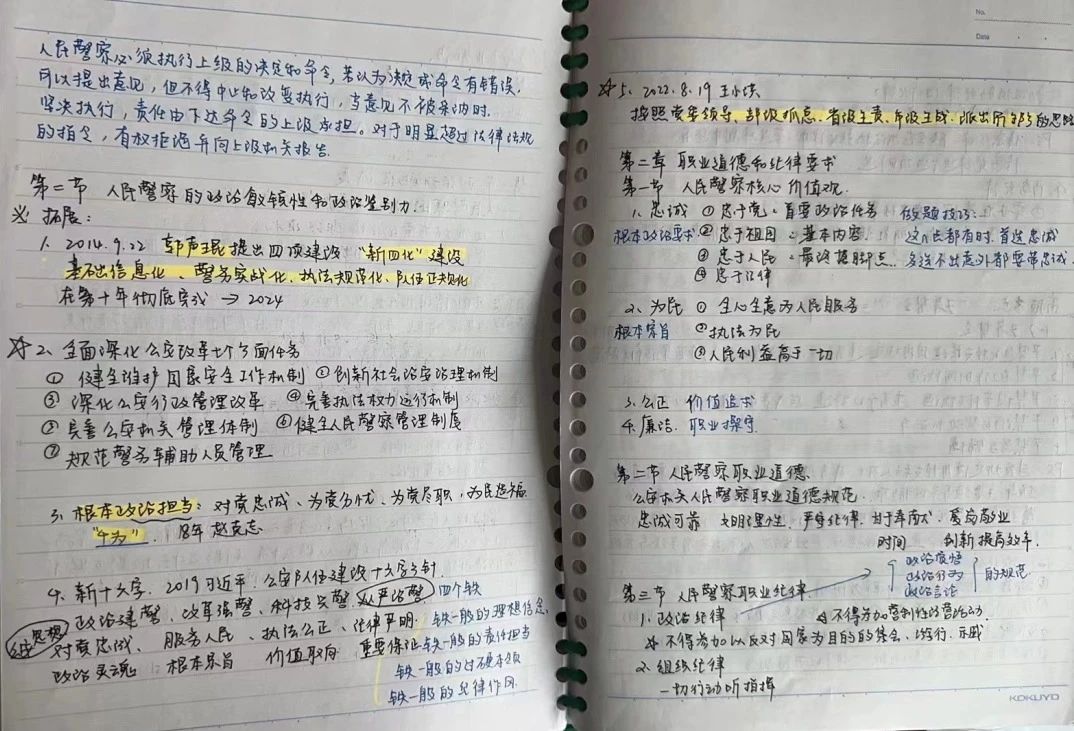 人民警察必须执行上级的决定和命令,若认为决定或命令有错误,
可以提出意见,但不得中止和改变执行,当意见不被采纳时.
坚决执行,责任由下达命令的上级承担。对于明显超过法律法规
的指令,有权拒绝并向上级机关报告.
第二节 人民警察的政治敏锐性和政治鉴别力.
※ 拓展:
1. 2014.9.22 郭声琨提出四项建设 "新四化"建设
基础信息化、警务实战化、执法规范化、队伍正规化
在第十年彻底完成 → 2024
☆2、全面深化公安改革七个方面任务
① 健全维护国家安全工作机制 ②创新社会治安治理机制
③ 深化公安行政管理改革 ④完善执法权力运行机制
⑤ 完善公安机关管理体制 ⑥健全人民警察管理制度
⑦ 规范警务辅助人员管理
3、根本政治担当:对党忠诚、为党分忧、为党尽职,为民造福.
"4为" 18年 赵克志
4. 新十六字. 2019 习近平. 公安队伍建设十六字方针.
政治建警、改革强警、科技兴警、从严治警. 四个铁
总思想 对党忠诚、服务人民、执法公正、纪律严明. 铁一般的理想信念、
政治灵魂 根本宗旨 价值取向 重要保证 铁一般的责任担当
铁一般的过硬本领
铁一般的纪律作风.
No.
Date
☆5、2022.8.19 王小洪
按照党委领导、部级抓总、省级主责、市级主战、派出所 的思路
第二章 职业道德和纪律要求
第一节 人民警察核心价值观.
1. 忠诚 ①忠于党:首要政治任务 做题技巧:
根本政治要求 ②忠于祖国:基本内容. 这几点都有时.首选忠诚
③忠于人民:最终落脚点. 多选不出意外都要带忠诚.
④忠于法律
2、为民 ① 全心全意为人民服务
根本宗旨 ②执法为民
③人民利益高于一切
3、公正 价值追求
4.廉洁. 职业操守
第二节 人民警察职业道德.
公安机关人民警察职业道德规范.
忠诚可靠 文明理性, 严守纪律. 甘于奉献 爱岗敬业
时间 创新提高效率.
政治觉悟
第三节 人民警察职业纪律 政治行为 的规范
政治言论
1. 政治纪律 不得参加营利性经营活动
☆ 不得参加以反对国家为目的的集会、游行、示威
2. 组织纪律
一切行动听指挥
KOKUYO